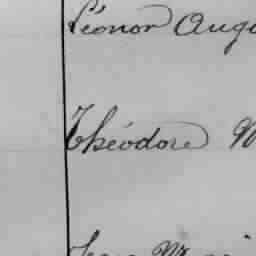 Léonor Augu
Théodore M